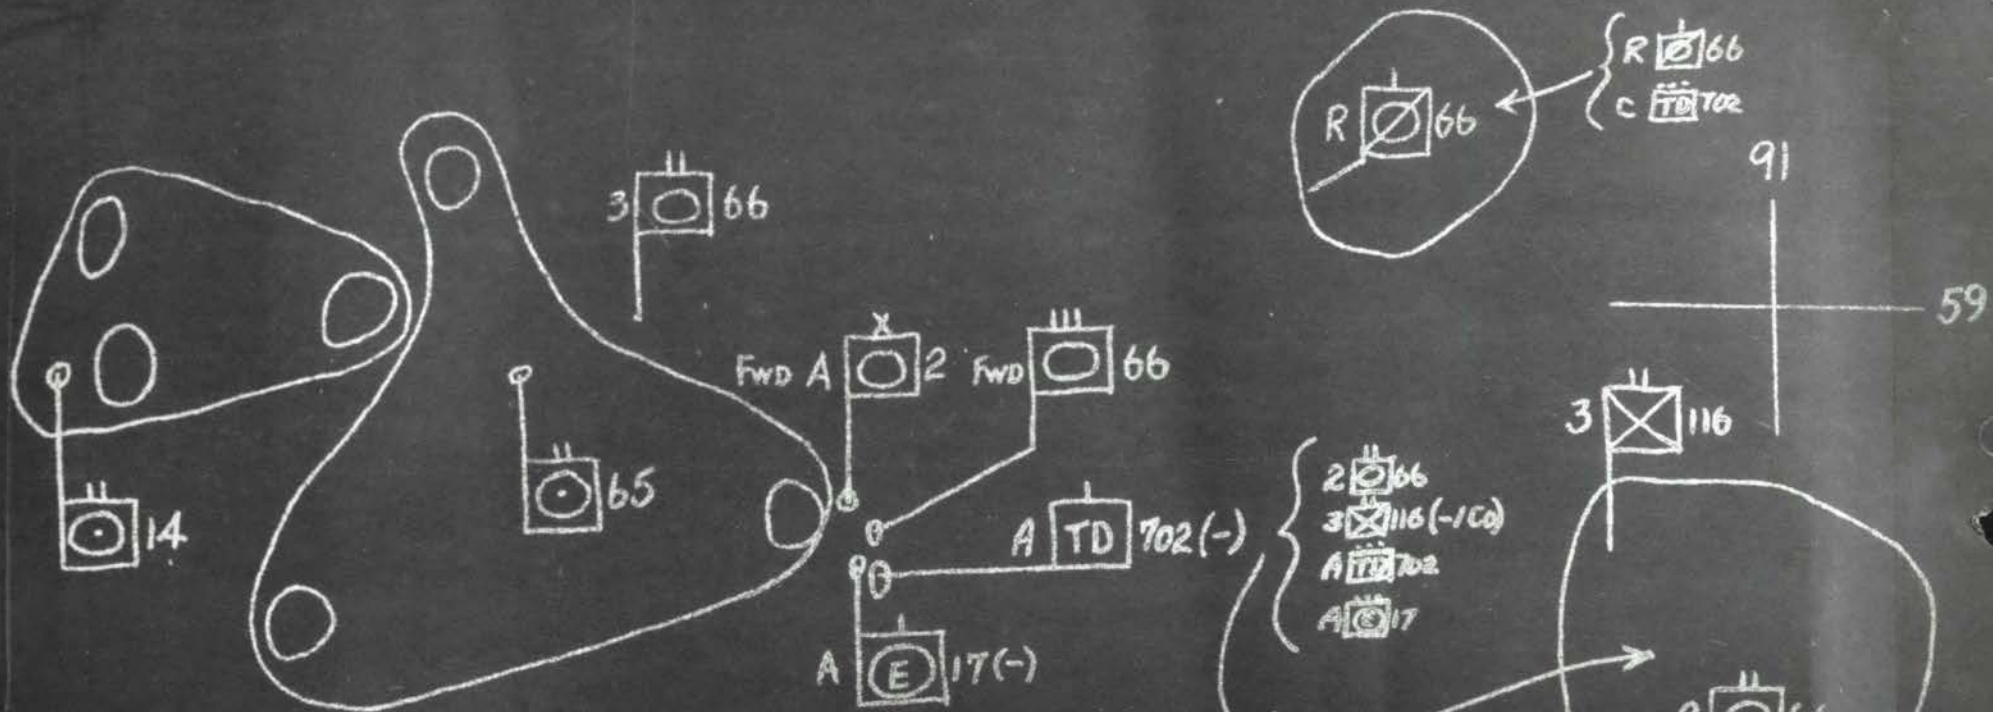 R 66
R 66
C TD 702
91
59
3 66
FWD A 2
FWD 66
3 116
14
65
A TD 702(-)
A E 17(-)
2 66
3 116(-1 CO)
A TD 702
A E 17